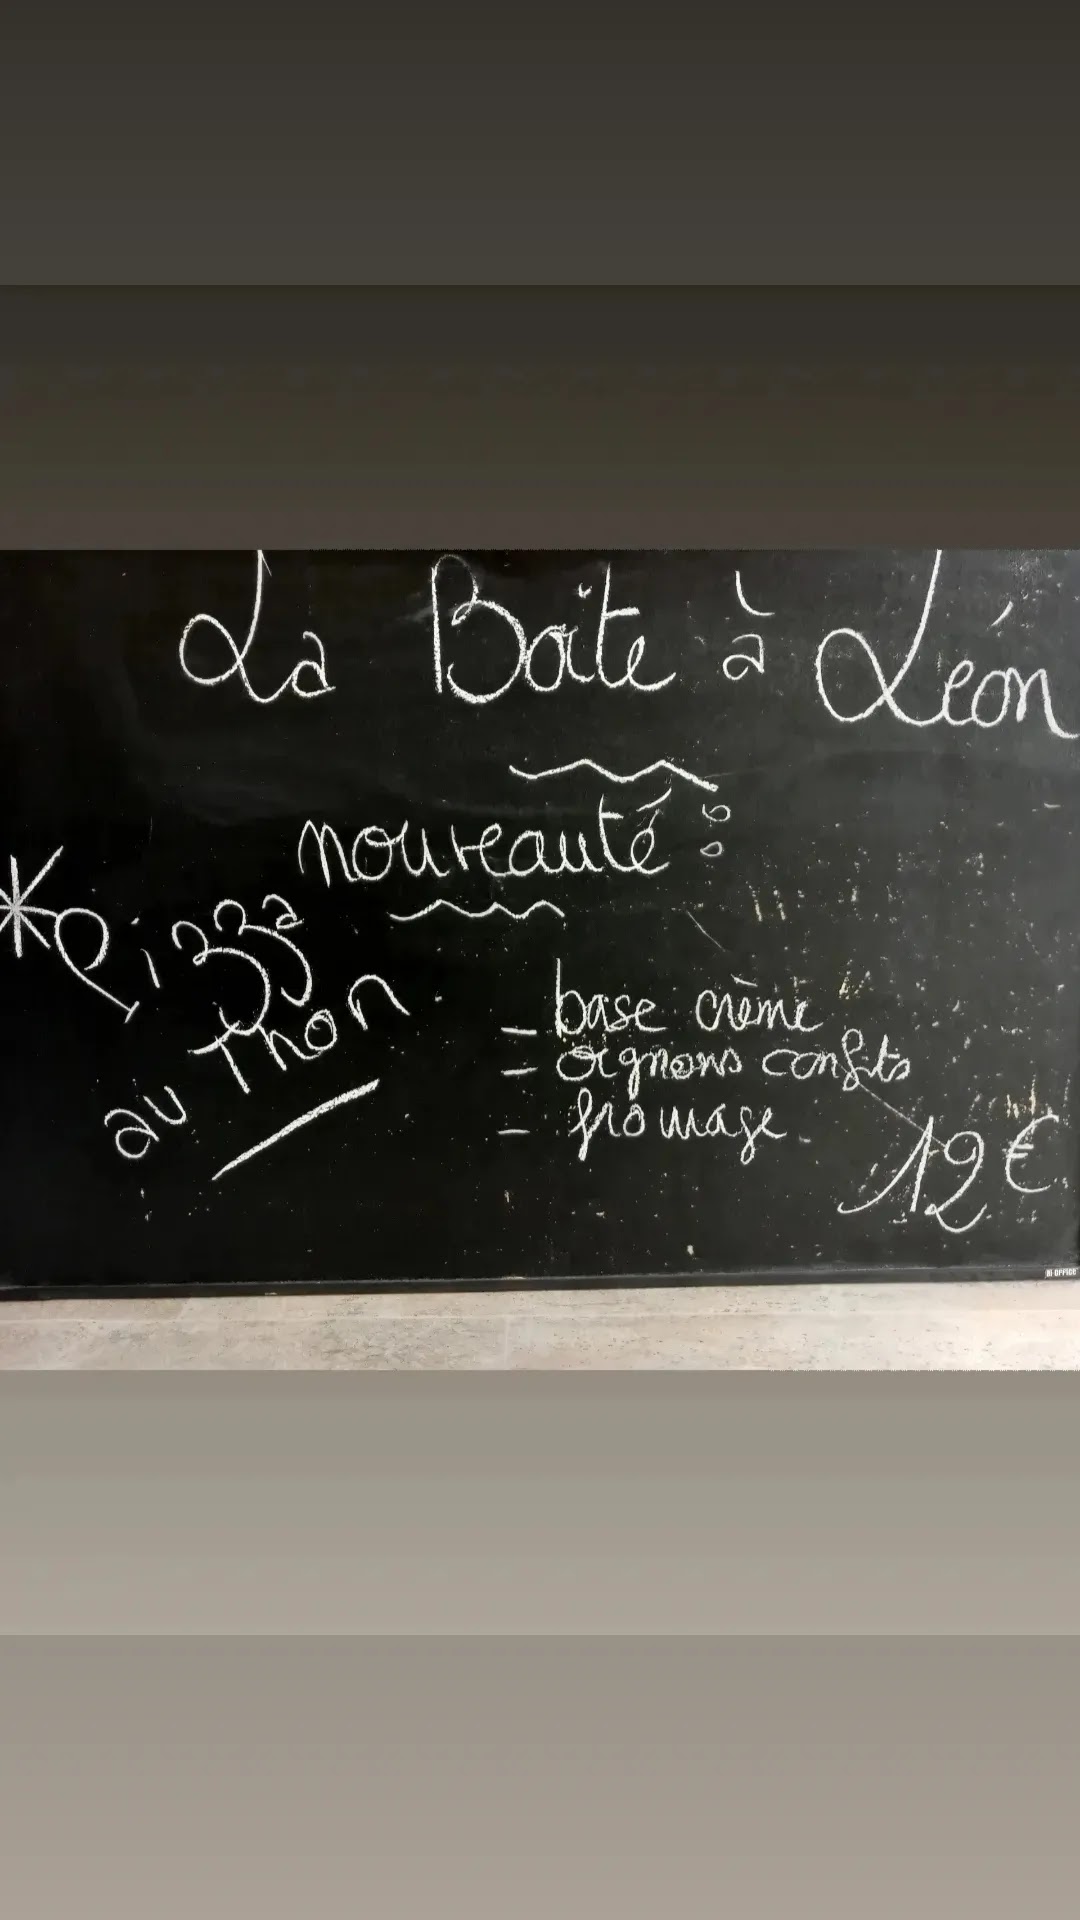 La Boite à Léon
nouveauté :
*Pizza
au Thon
- base crème
- oignons confits
- fromage.
12 €
BI-OFFICE